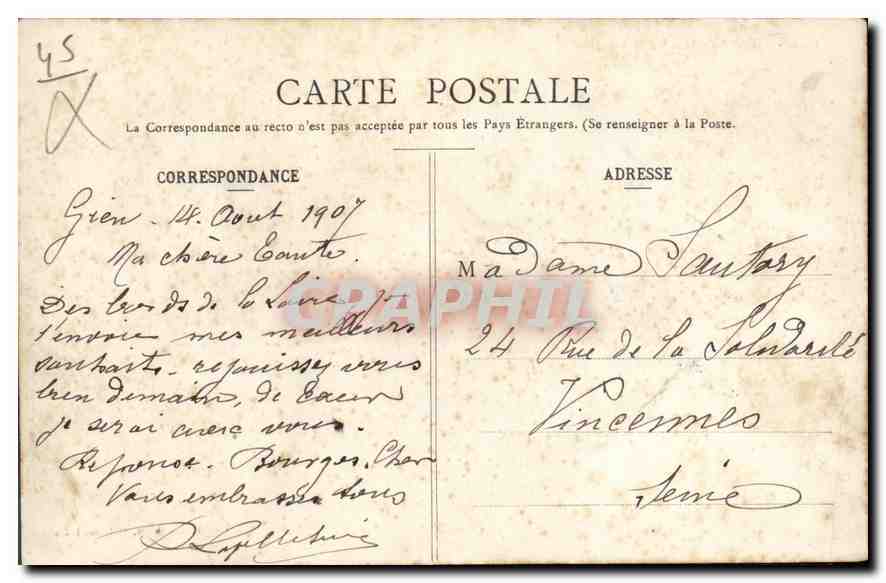 45
CARTE POSTALE
La Correspondance au recto n'est pas acceptée par tous les Pays Étrangers. (Se renseigner à la Poste.
CORRESPONDANCE
Gien - 14. Aout 1907
Ma chère Tante.
Des bords de la Loire je
t'envoie mes meilleurs
souhaits - rejouissez vous
bien demain, de cœur
je serai avec vous.
Reponse. Bourges. Cher
Vous embrasse tous
ADRESSE
Madame Sautory
24 Rue de la Solidarité
Vincennes
Seine
CRAPHIL